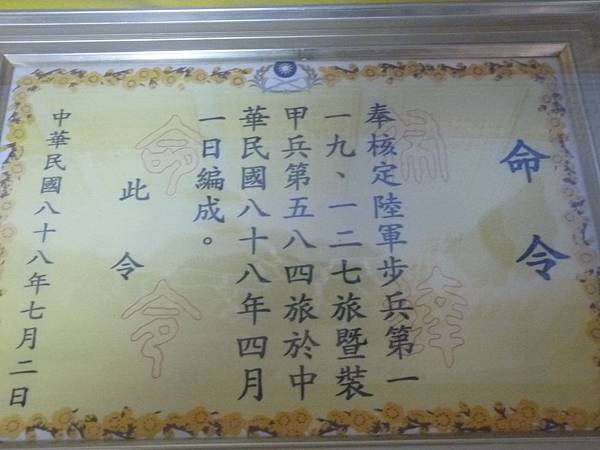 命令
奉核定陸軍步兵第一
一九、一二七旅暨裝
甲兵第五八四旅於中
華民國八十八年四月
一日編成。
此令
中華民國八十八年七月二日
命令